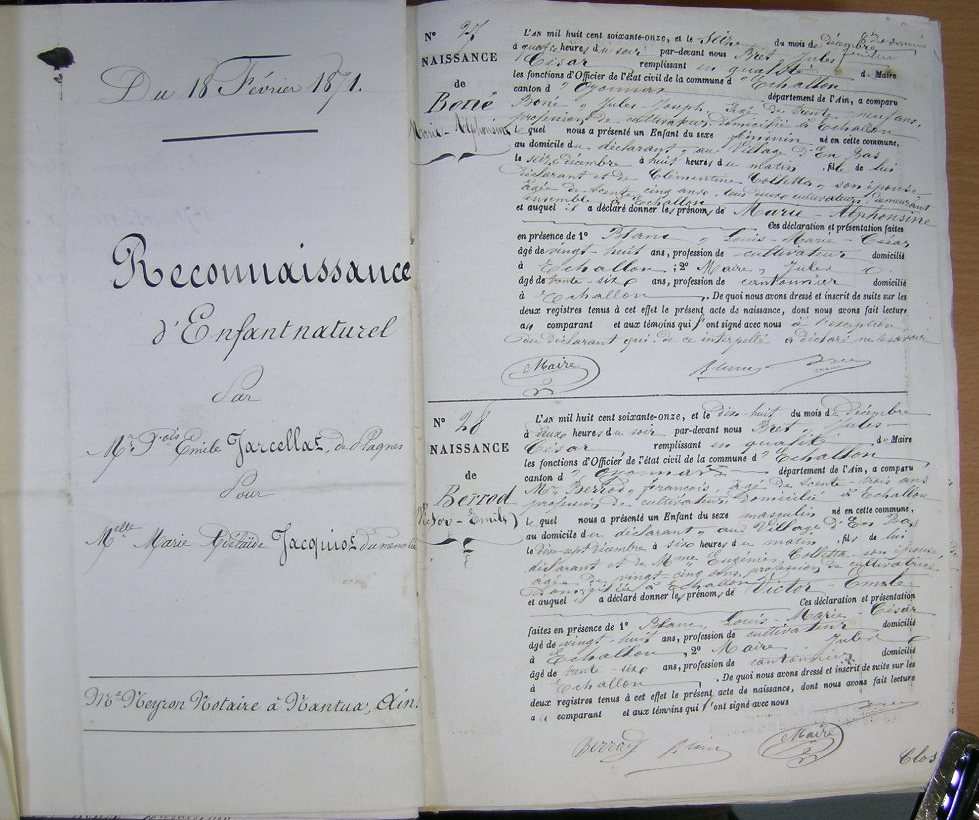 Du 18 Février 1871.
Reconnaissance
d'Enfant naturel
Par
Mr. Fois Emile Jarcellat, de Plagnes
Pour
Melle Marie Adélaïde Jacquiot du même lieu
Me Neyron Notaire à Nantua, Ain.
N° 27
NAISSANCE
de
Boné
Marie-Alphonsine
L'AN mil huit cent soixante-onze, et le seize du mois de décembre
à quatre heures du soir par-devant nous Bret Jules
César remplissant en qualité de Maire
les fonctions d'Officier de l'état civil de la commune d'Echallon
canton d'Oyonnax département de l'Ain, a comparu
Boné Jules Joseph, âgé de trente neuf ans,
profession de cultivateur domicilié à Echallon
lequel nous a présenté un Enfant du sexe féminin né en cette commune,
au domicile du déclarant, au Village d'En Bas
le seize décembre à huit heures du matin fille de lui
déclarant et de Clémentine Colletta, son épouse
âgée de trente cinq ans, tous deux cultivateurs demeurant
ensemble à Echallon
et auquel il a déclaré donner les prénoms de Marie-Alphonsine
Ces déclaration et présentation faites
en présence de 1° Blanc, Louis-Marie-César
âgé de vingt-huit ans, profession de cultivateur domicilié
à Echallon ; 2° Maire, Jules
âgé de trente-six ans, profession de cantonnier domicilié
à Echallon. De quoi nous avons dressé et inscrit de suite sur les
deux registres tenus à cet effet le présent acte de naissance, dont nous avons fait lecture
au comparant et aux témoins qui l'ont signé avec nous à l'exception
du déclarant qui de ce interpellé a déclaré ne le savoir
Maire Blanc Bret
N° 28
NAISSANCE
de
Berrod
Victor-Emile
L'AN mil huit cent soixante-onze, et le dix-huit du mois de décembre
à deux heures du soir par-devant nous Bret, Jules
César remplissant en qualité de Maire
les fonctions d'Officier de l'état civil de la commune d'Echallon
canton d'Oyonnax département de l'Ain, a comparu
Mr Berrod, françois, âgé de trente-trois ans
profession de cultivateur, domicilié à Echallon
lequel nous a présenté un Enfant du sexe masculin né en cette commune,
au domicile du déclarant, au Village d'En Bas
le dix-sept décembre à six heures du matin, fils de lui
déclarant et de Mme Eugénie Colletta son épouse,
âgée de vingt-cinq ans, profession de cultivatrice
domiciliée à Echallon
et auquel a déclaré donner les prénoms de Victor-Emile
Ces déclaration et présentation
faites en présence de 1° Blanc, Louis Marie-César
âgé de vingt-huit ans, profession de cultivateur domicilié
à Echallon, 2° Maire Jules
âgé de trente-six ans, profession de cantonnier domicilié
à Echallon. De quoi nous avons dressé et inscrit de suite sur les
deux registres tenus à cet effet le présent acte de naissance, dont nous avons fait lecture
au comparant et aux témoins qui l'ont signé avec nous
Berrod Blanc Maire Bret
Clos